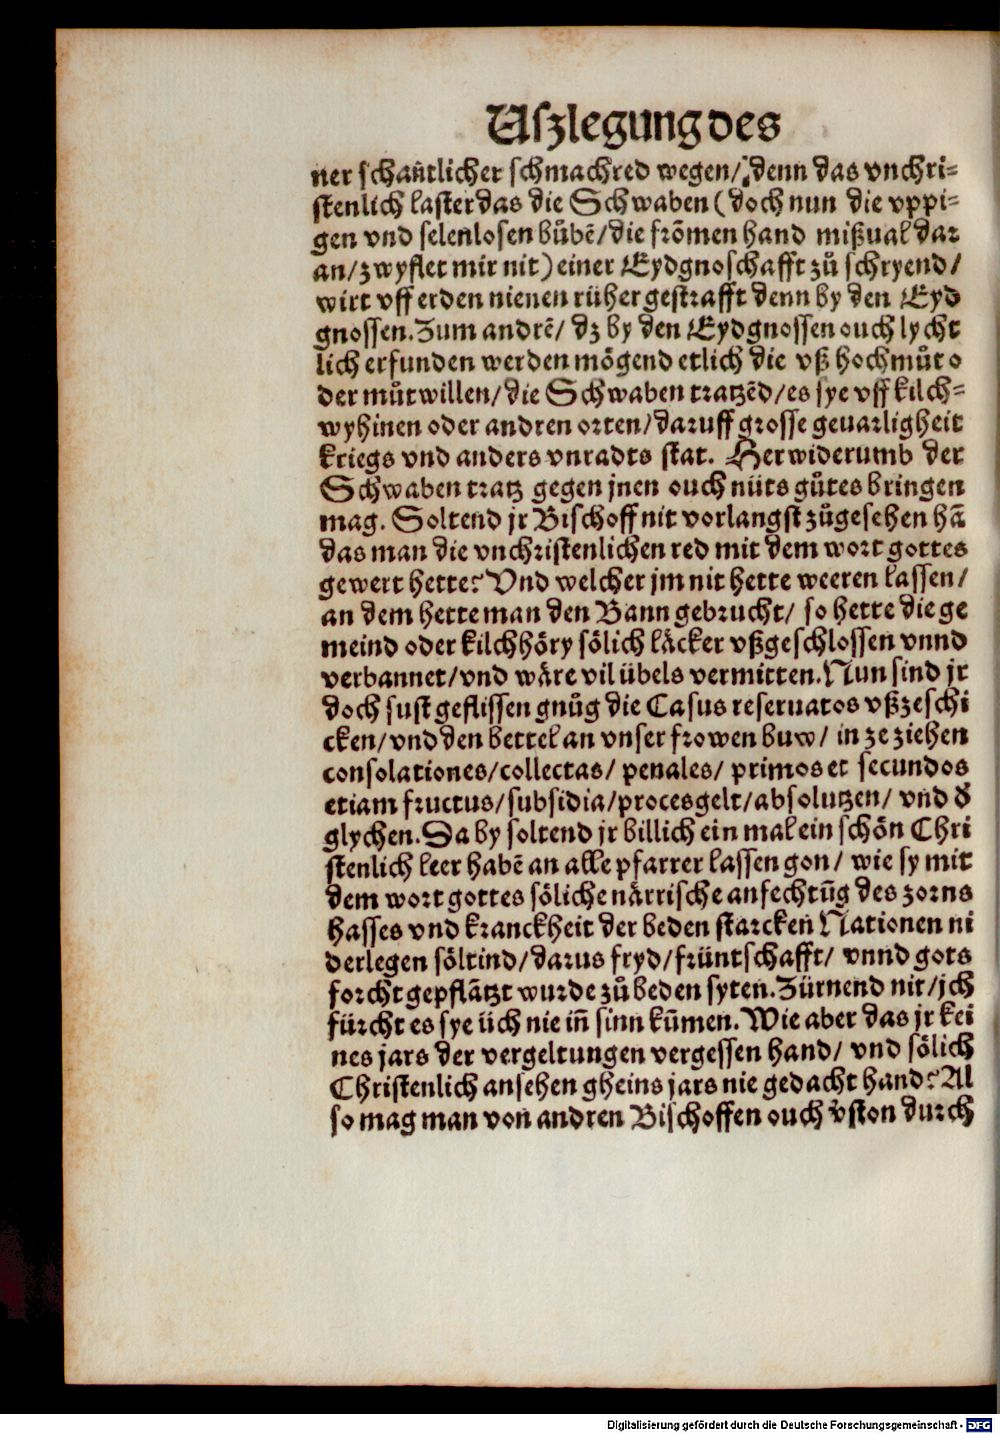 Uſzlegung des
ner ſchantlicher ſchmachred wegen/ denn das vnchri⸗
ſtenlich laſter das die Schwaben (doch nun die vppi⸗
gen vnd ſelenloſen bůbē/die frōmen hand mißual dar
an/zwyflet mir nit) einer Eydgnoſchafft zů ſchryend/
wirt vff erden nienen rüher geſtrafft denn by den Eyd
gnoſſen. Zum andrē/ dz by den Eydgnoſſen ouch lycht
lich erfunden werden mögend etlich die vß hochmůt o
der můtwillen/die Schwaben tratzēd/es ſye vff kilch⸗
wyhinen oder andren orten/daruff groſſe geuarligheit
kriegs vnd anders vnradts ſtat. Herwiderumb der
Schwaben tratz gegen jnen ouch nüts gůtes bringen
mag. Soltend jr Biſchoff nit vorlangſt zůgeſehen hā
das man die vnchriſtenlichen red mit dem wort gottes
gewert hette? Vnd welcher jm nit hette weeren laſſen/
an dem hette man den Bann gebrucht/ ſo hette die ge
meind oder kilchhöry ſölich läcker vßgeſchloſſen vnnd
verbannet/vnd wäre vil übels vermitten. Nun ſind jr
doch ſuſt gefliſſen gnůg die Caſus reſeruatos vßzeſchi
cken/vnd den bettel an vnſer frowen buw/ in ze ziehen
conſolationes/collectas/ penales/ primos et ſecundos
etiam fructus/ſubſidia/procesgelt/abſolutzen/ vnd đ
glychen. Da by ſoltend jr billich ein mal ein ſchön Chri
ſtenlich leer habē an alle pfarrer laſſen gon/ wie ſy mit
dem wort gottes ſöliche närriſche anfechtūg des zorns
haſſes vnd kranckheit der beden ſtarcken Nationen ni
derlegen ſöltind/darus fryd/früntſchafft/ vnnd gots
forcht gepflātzt wurde zů beden ſyten. Zürnend nit/jch
fürcht es ſye üch nie in̄ ſinn kūmen. Wie aber das jr kei
nes jars der vergeltungen vergeſſen hand/ vnd ſölich
Chriſtenlich anſehen gheins jars nie gedacht hand? Al
ſo mag man von andren Biſchoffen ouch v̓ſton durch
Digitalisierung gefördert durch die Deutsche Forschungsgemeinschaft - DFG